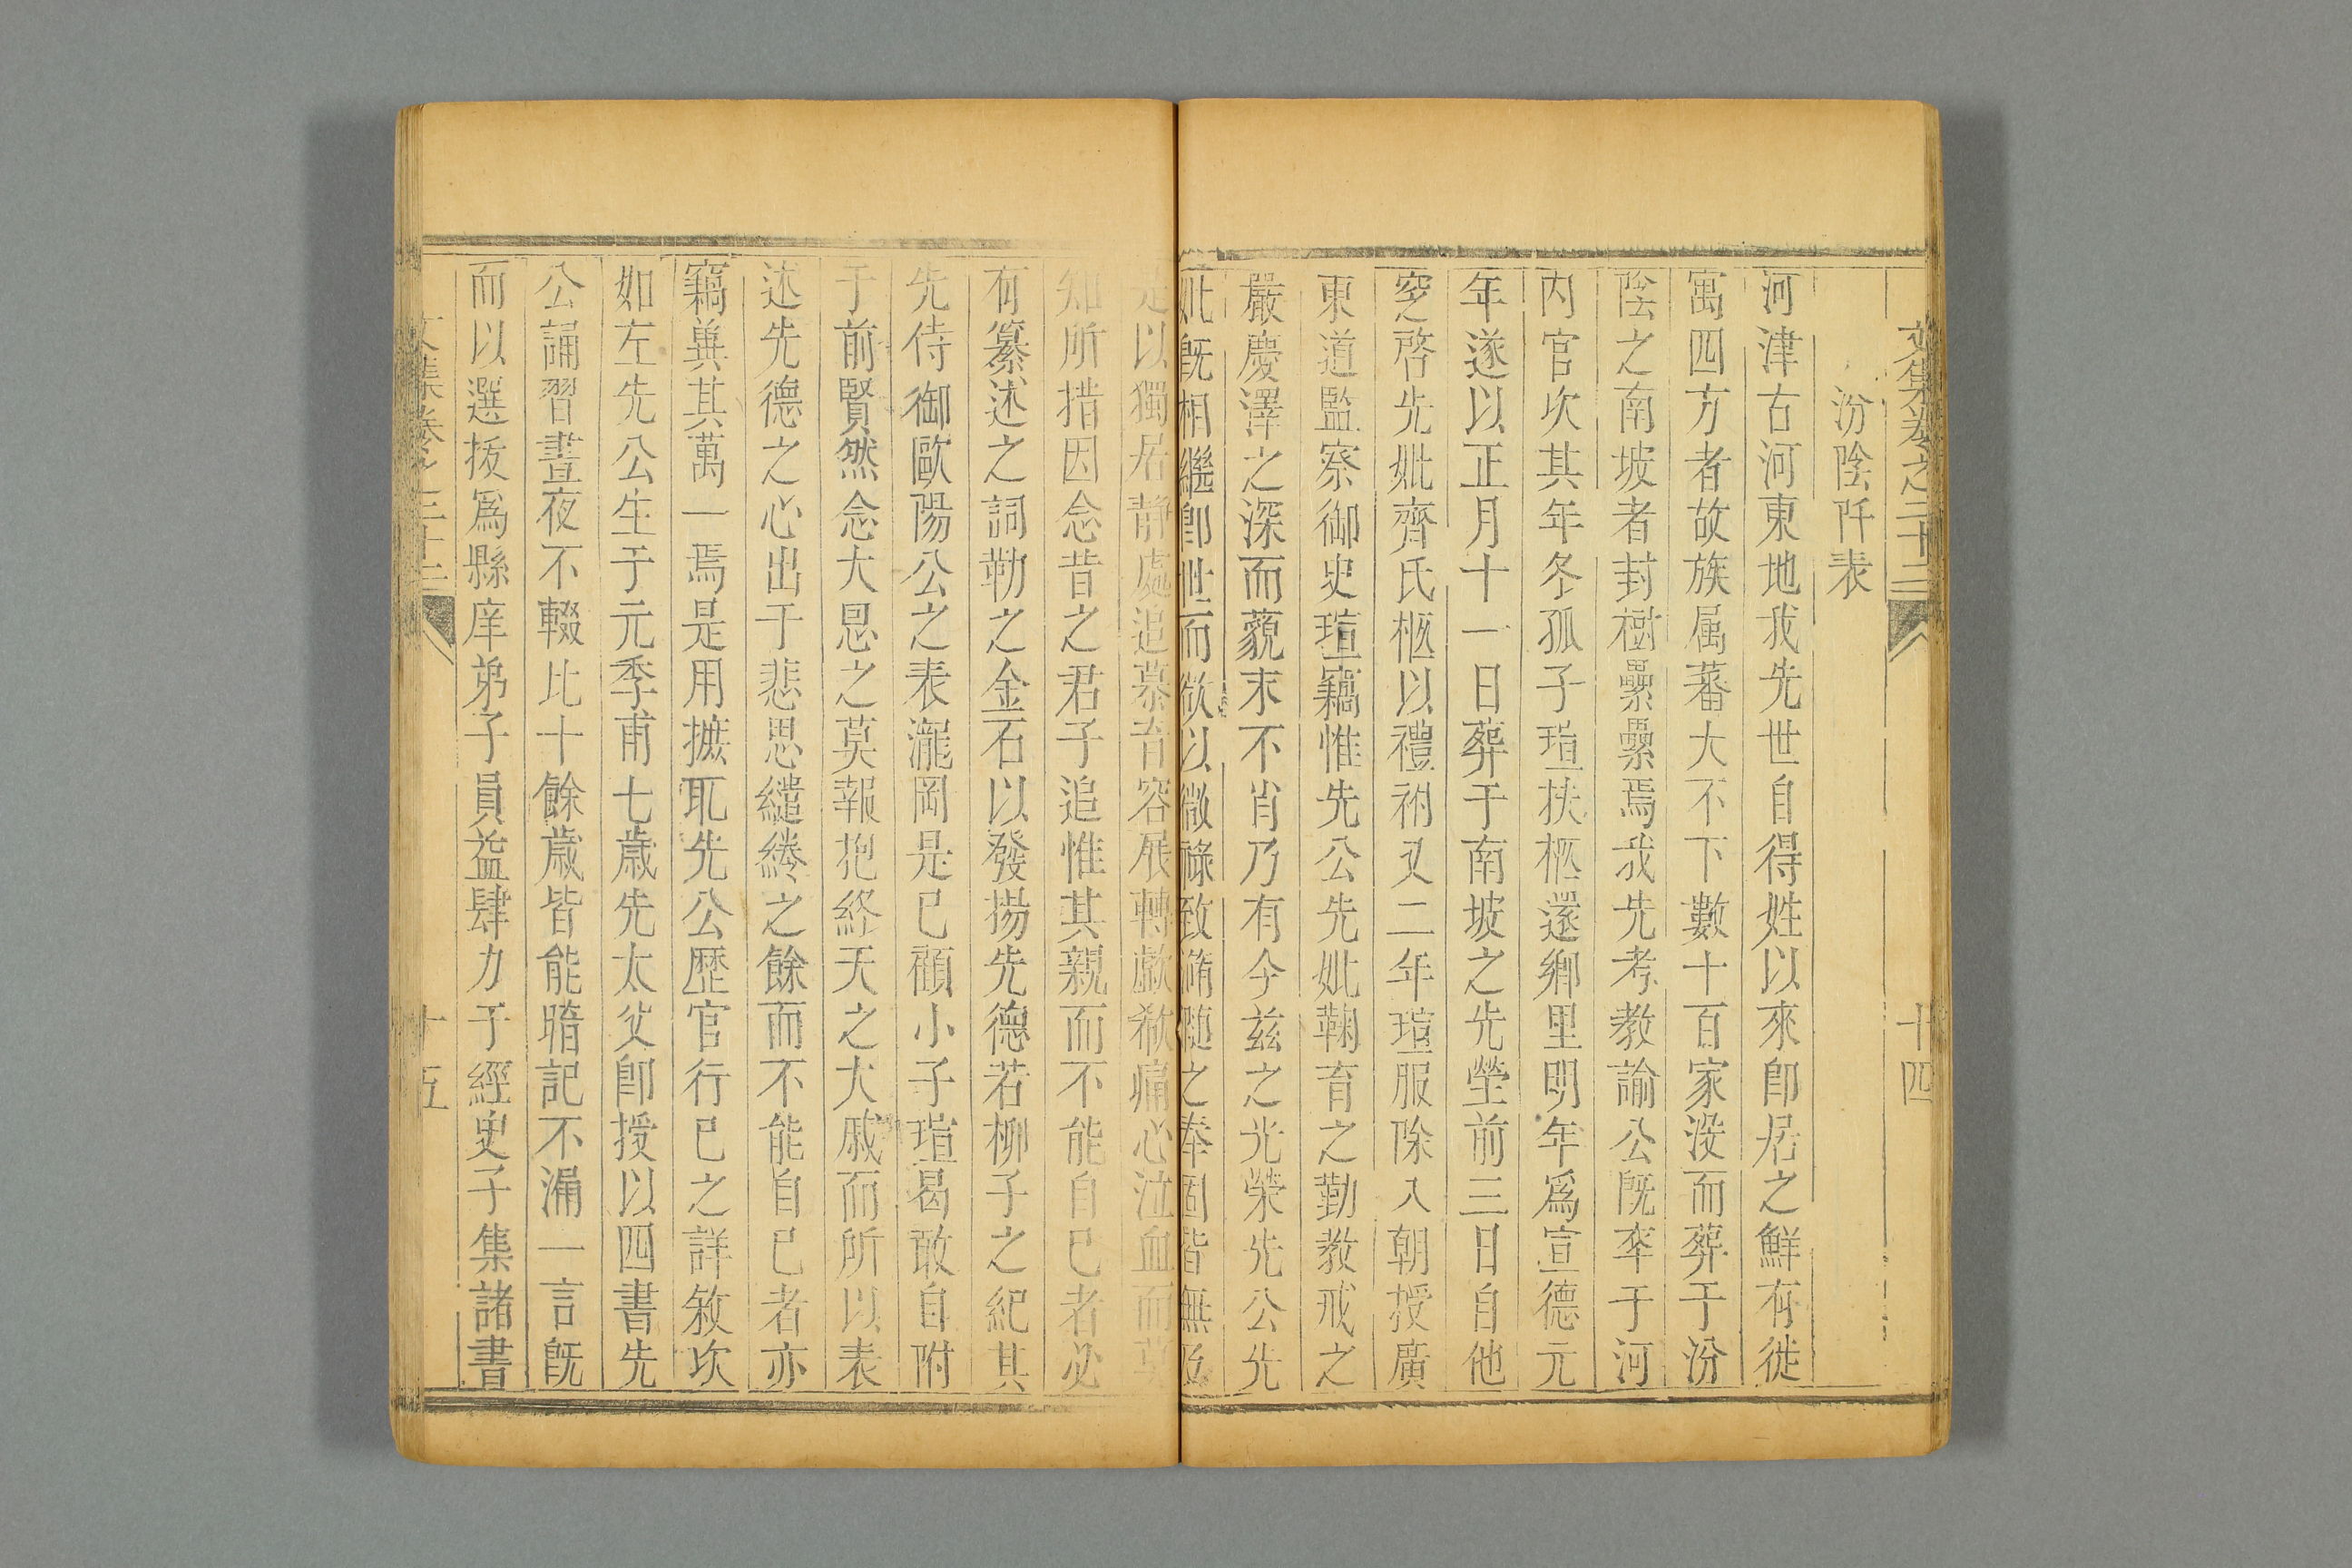 文集卷之二十三
十四
汾陰阡表
河津古河東地我先世自得姓以來卽居之鮮有徙
寓四方者故族属蕃大不下數十百家没而葬于汾
陰之南坡者封樹纍纍焉我先考教諭公旣卒于河
内官次其年冬孤子瑄扶柩還鄉里明年爲宣德元
年遂以正月十一日葬于南坡之先塋前三日自他
窆啓先妣齊氏柩以禮祔又二年瑄服除入朝授廣
東道監察御史瑄竊惟先公先妣鞠育之勤教戒之
嚴慶澤之深而藐末不肖乃有今兹之光榮先公先
妣旣相繼卽世而欲以微祿致滫瀡之奉固皆無及
是以獨居静處追慕音容展轉歔欷痛心泣血而莫
知所措因念昔之君子追惟其親而不能自已者必
有纂述之詞勒之金石以發揚先德若柳子之紀其
先侍御歐陽公之表瀧岡是已顧小子瑄曷敢自附
于前賢然念大恩之莫報抱終天之大戚而所以表
述先德之心出于悲思繾綣之餘而不能自已者亦
竊冀其萬一焉是用摭耴先公歷官行已之詳敘次
如左先公生于元季甫七歲先太父卽授以四書先
公誦習晝夜不輟比十餘歲皆能暗記不漏一言旣
而以選拔爲縣庠弟子員益肆力于經史子集諸書
文集卷之二十三
十五